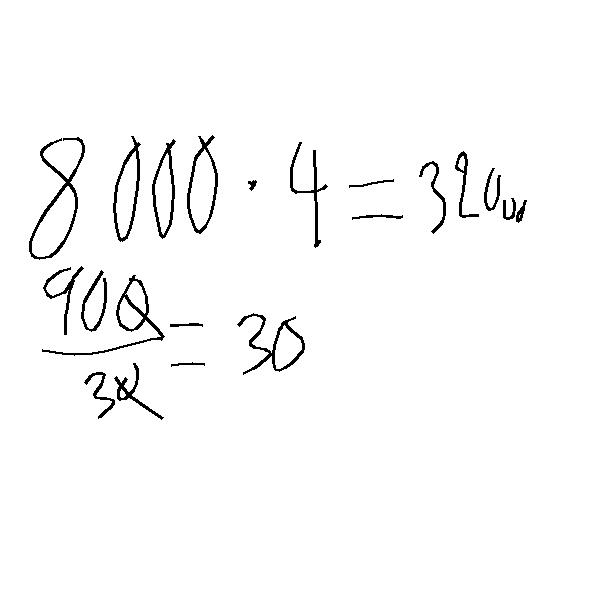 8 000 · 4 = 32000
900/30 = 30